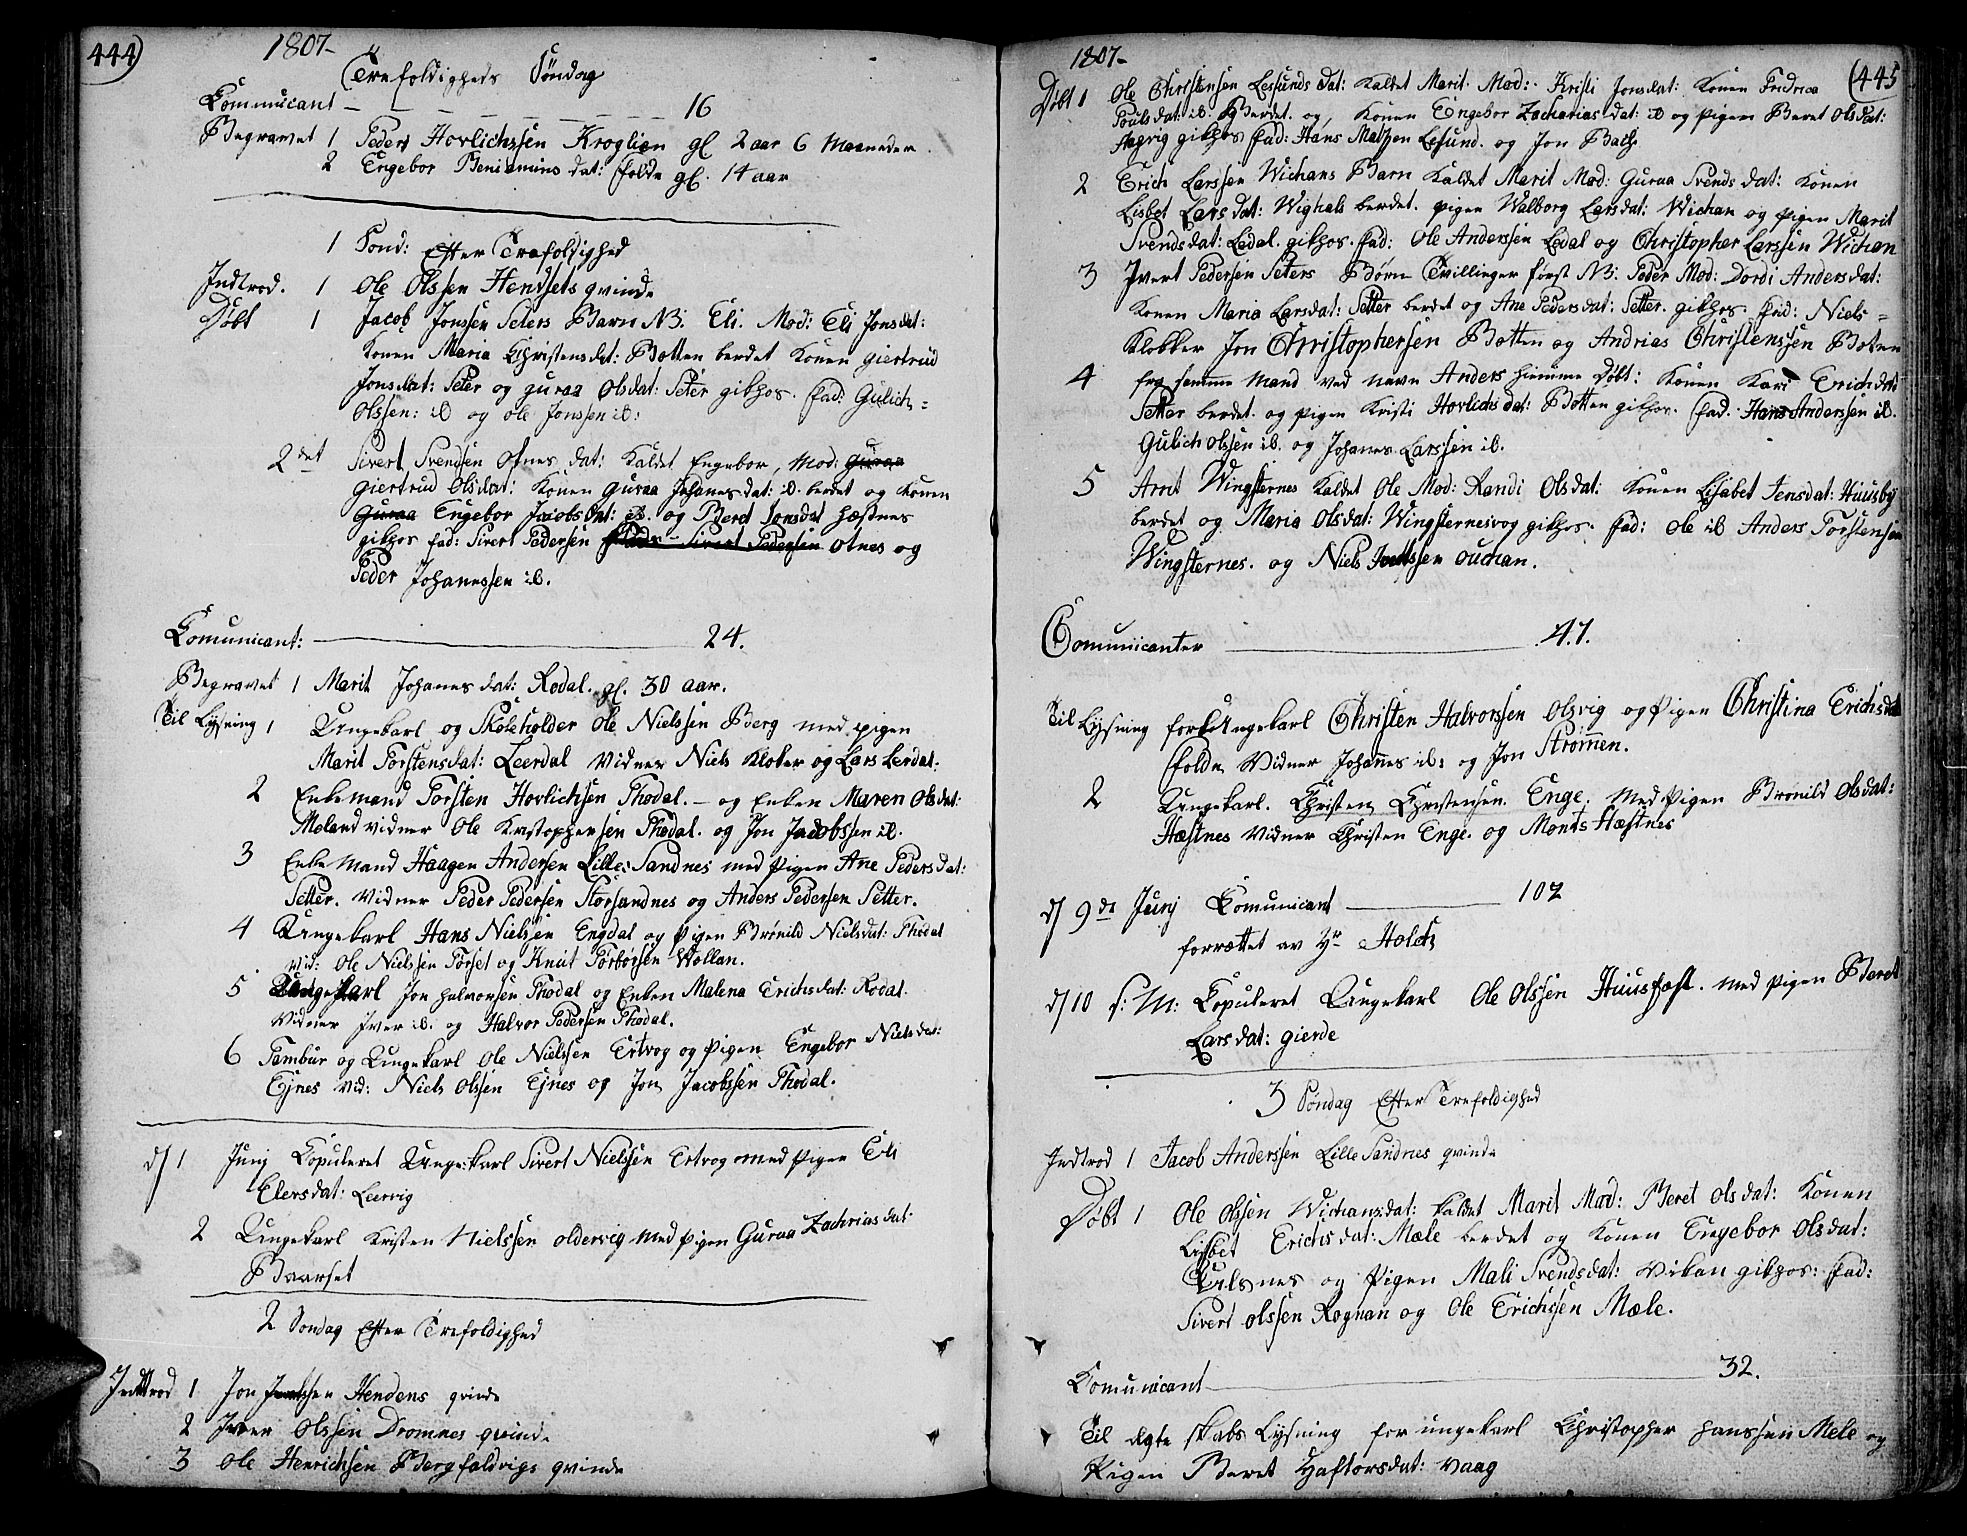 444)
1807-
Trefoldigheds Søndag
Communicant 16
Begravet 1 Peder Hovlichssen Kroglien gl 2 aar 6 Maaneder.
2 Engebor Beniamins dat: Folde gl. 14 aar
1 Sønd: Efter Trefoldighed
Indtrod. 1 Ole Olssen Hendsets qvinde
Døbt 1 Jacob Jonssen Seters Barn N3. Eli. Mod: Eli Jonsdat:
Konen Maria Christensdat: Botten berdet Konen giertrud
Jonsdat: Seter og guraa Olsdat: Seter gikhos. Fad: Gulich=
Olssen: ib og ole Jonssen ib:
2det Sivert Svendsen Otnes dat: Kaldet Engebor, Mod: Guraa
Giertrud Olsdat: Konen Guraa Johanesdat: ib. berdet og Konen
Guraa Engebor Jacobsdat: ib. og Beret Jonsdat Hæstnes
gikhos Fad: Sivert Pedersen Otnes og
Peder Johannessen ib.
Comunicant: 24.
Begravet 1 Marit Johanes dat: Rodal. gl. 30 aar.
Til Lysning 1 Ungekarl og Skoleholder Ole Nielssen Berg med pigen
Marit Torstensdat: Leerdal Vidner Niels Kloker og Lars Lerdal.
2 Enkemand Torsten Hovlichsen Thodal. – og Enken Maren Olsdat:
Moland vidner Ole Kristophersen Thodal. og Jon Jacobssen ib.
3 Enke Mand Haagen Andersen Lille: Sandnes med Pigen Ane Pedersdat:
Setter. Vidner Peder Pedersen Storsandnes og Anders Pedersen Setter.
4 Ungekarl Hans Nielsen Engdal og Pigen Brønild Nielsdat: Thodal
Vid: Ole Nielssen Torset og Knut Torborsen Wollan.
5 Ungekarl Jon halvorsen Thodal og Enken Malena Erichsdat: Rodal.
Vidner Iver ib. og Halvor Pedersen Thodal.
6 Tambur og Ungekarl Ole Nielssen Ertvog og Pigen Engebor Nielsdat:
Ejnes Vid: Niels Olssen Ejnes og Jon Jacobssen Thodal.
d/ 1 Junij Copuleret Ungekarl Sivert Nielssen Ertvog med Pigen Eli
Elersdat: Leervig
2 Ungekarl Kristen Nielssen oldervig med Pigen Guraa Zachriasdat:
Baarset
2 Søndag Efter Trefoldighed
Indtrod 1 Jon Hendens qvinde
2 Iver Olssen Dromnes qvinde
3 Ole Henrichsen Bergfaldvigs qvinde
1807-
(445
Døbt 1 Ole Christensen Lesunds dat: Kaldet Marit. Mod: Kristi Jonsdat: Konen Fridrica
Poulsdat: ib. Berdet. og, Konen Engebor Zacharias dat: ib og Pigen Beret Olsdat:
gikhos Fad: Hans Matzen Lesund. og Jon Bach
2 Erich Larssen Wichans Barn Kaldet Marit Mod: Guraa Svends dat: Konen
Lisbet Lars dat: Wighals berdet. pigen Walborg Larsdat: Wichan og Pigen Marit
Svendsdat: Ledal. gikhos. Fad: Ole Anderssen Ledal og Christopher Larssen Wichan
3 Ivert Pedersen Seters Børn Tvillinger først N3. Peder Mod: Dordi Andersdat:
Konen Maria Larsdat: Setter berdet og Ane Pedersdat: Setter. gikhos. Fad: Niels=
Klokker Jon Christophersen Botten og Andrias Christenssen Boten
4 for samme Mand ved navn Anders hiemme Døbt: Konen Kari Erichdat
Setter berdet. og pigen Kristi Hovlichsdat: Botten gikhos. Fad. Hans Anderssen ib.
Gulich olssen ib. og Johanes Larssen ib.
5 Arnt Wingsternes Kaldet Ole Mod: Randi Olsdat: Konen Lisabet Jensdat: Huusby
berdet og Maria Olsdat: Wingsternesvog gikhos. Fad: Ole ib Anders Torstensen
Wingsternes. og Niels ouchan.
Comuniicanter 47.
Til Lysning for Ungekarl Christen Halvorssen Olsvig og Pigen Christina Erichsdat
Folde Vidner Johannes ib: og Jon Strømmen.
2 Ungekarl. Christen Christensen. Enge. Med Pigen Brønild Olsdat:
Hæstnes Vidner Christen Enge. og Monts Hæstnes
d/ 9de Junij Comunicant 102
forrættet av Hr Holch
d/ 10 s: M: Copuleret Ungekarl Ole Olssen Huusfast. med Pigen Beret
Larsdat: gierde
3 Søndag Efter Trefoldighed
Indtrod 1 Jacob Anderssen Lille Sandnes qvinde
Døbt 1 Ole Olssen Wichansdat: kaldet Marit Mod: Beret olsdat: Konen
Lisbet Erichsdat: Mæle berdet og Konen Engebor Olsdat:
Ulsnes og Pigen Mali Svendsdat: Vikan gikhos: Fad:
Sivert Olssen Rognan og Ole Erichssen Mæle.
Comunicant 32.
Til Egte skabs Lysning for ungekarl Christopher Hanssen Mele og
Pigen Beret Haftorsdat: Vaag